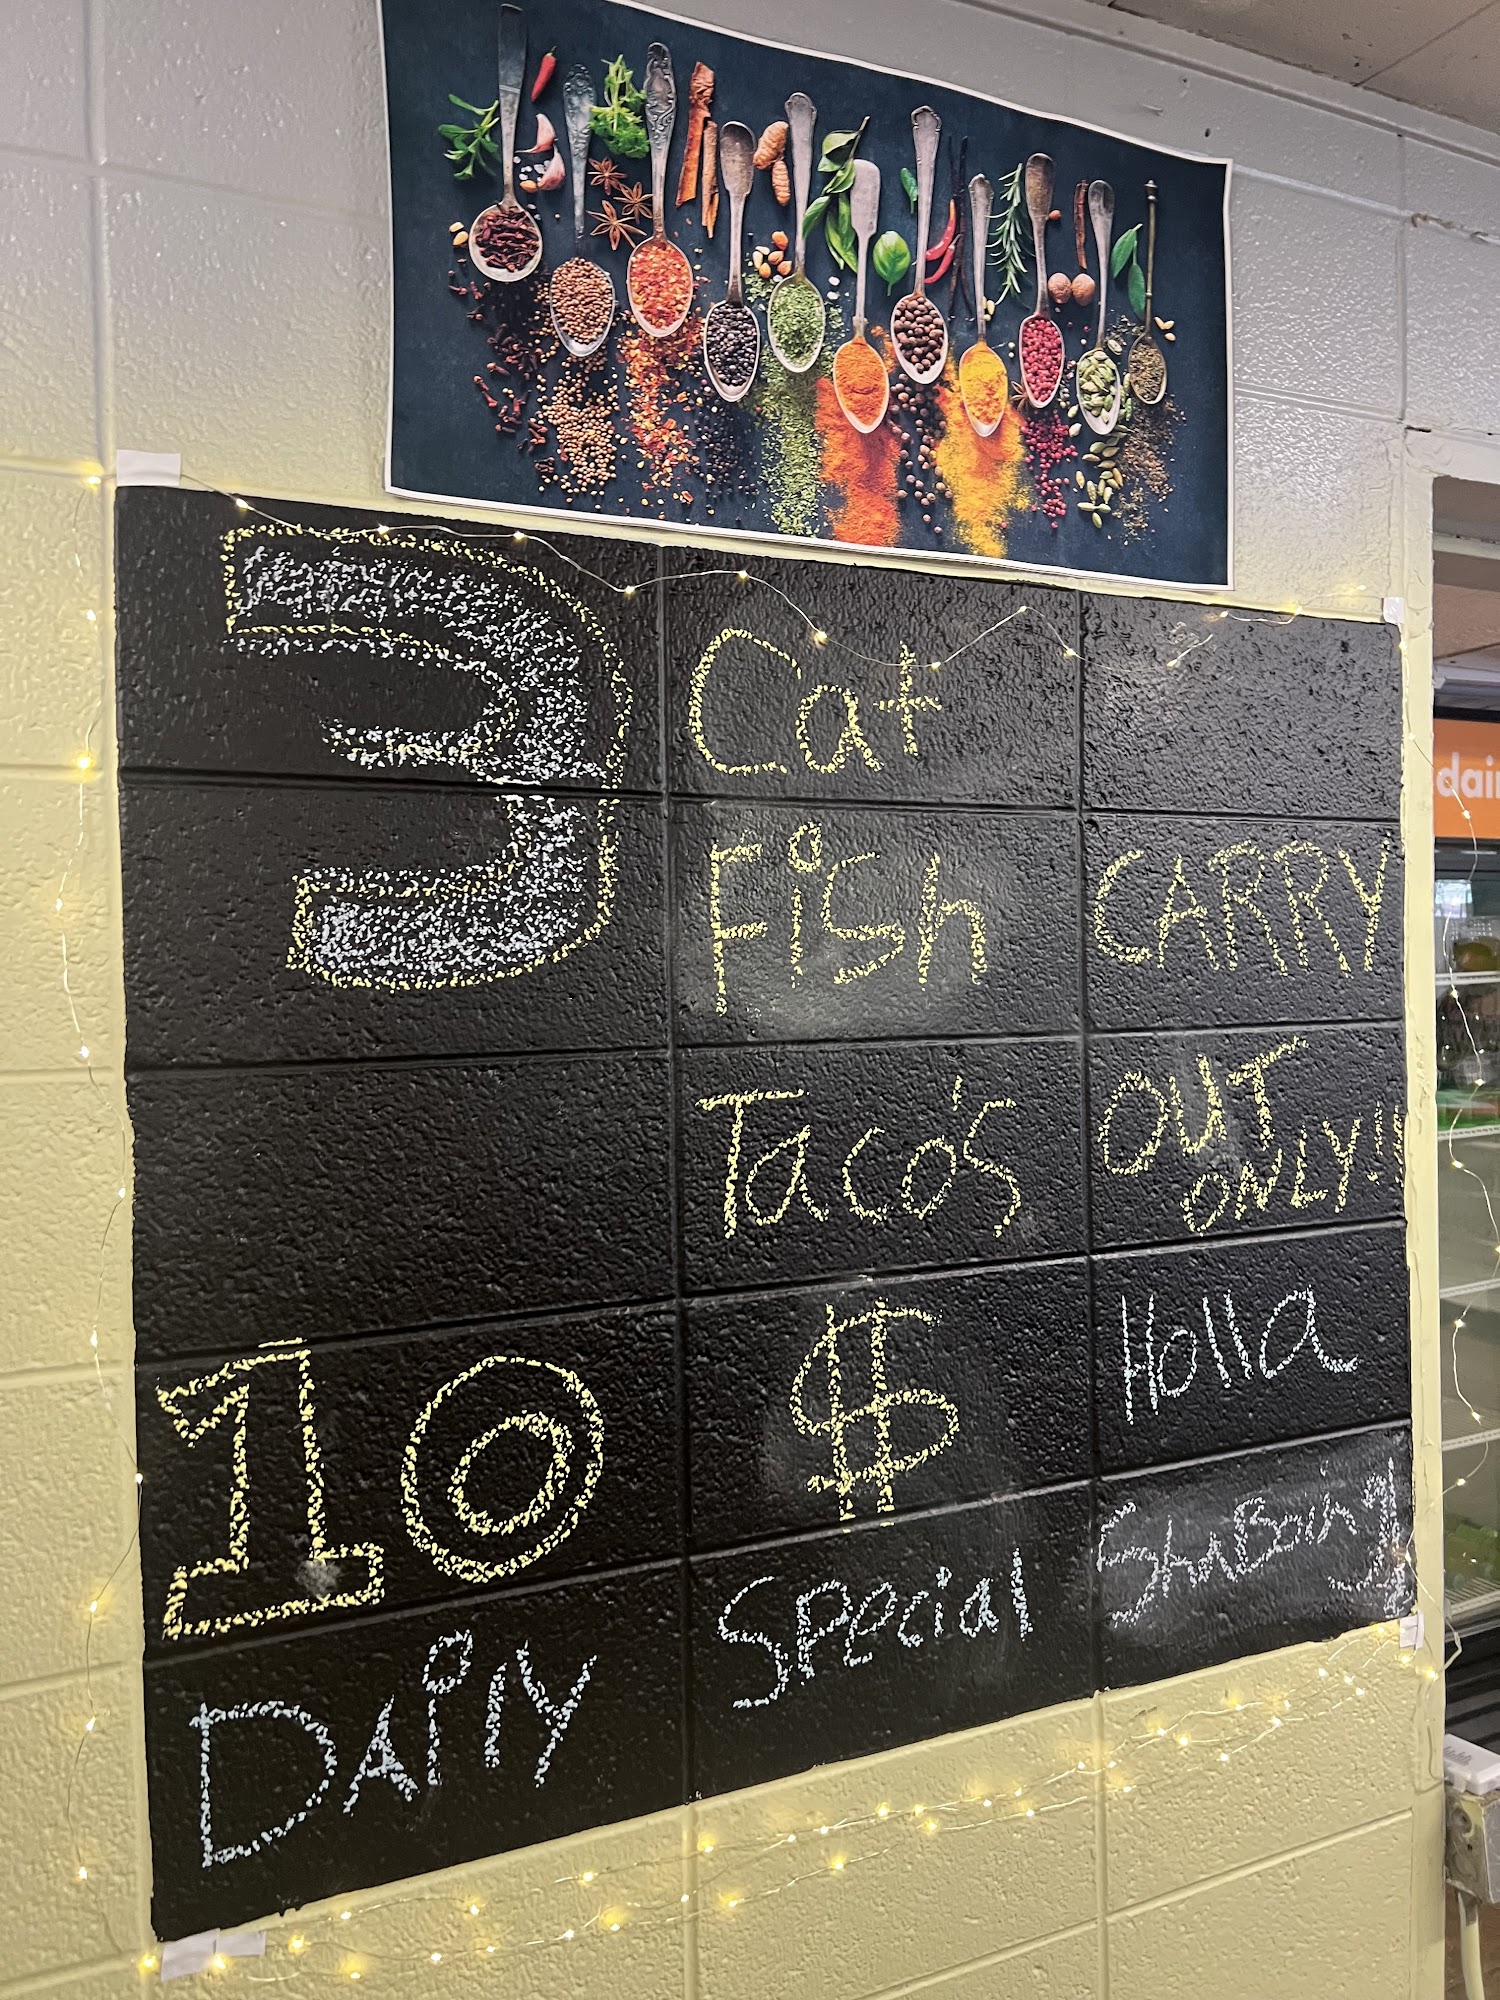 3 Cat
Fish
Taco's
CARRY
OUT
ONLY!!!
10 $
DAily Special
Holla
dai